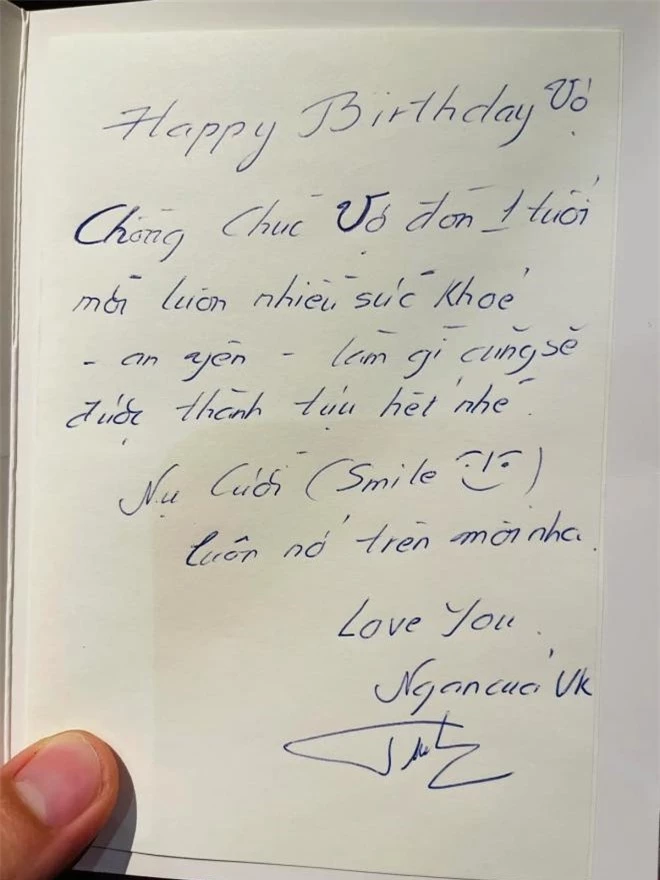 Happy Birthday Vợ
Chồng Chúc Vợ đón 1 tuổi
mới luôn nhiều sức khoẻ
- an yên - làm gì cũng sẽ
được thành tựu hết nhé.
Nụ Cười (Smile)
luôn nở trên môi nha.
Love You.
Ngạn của Vk